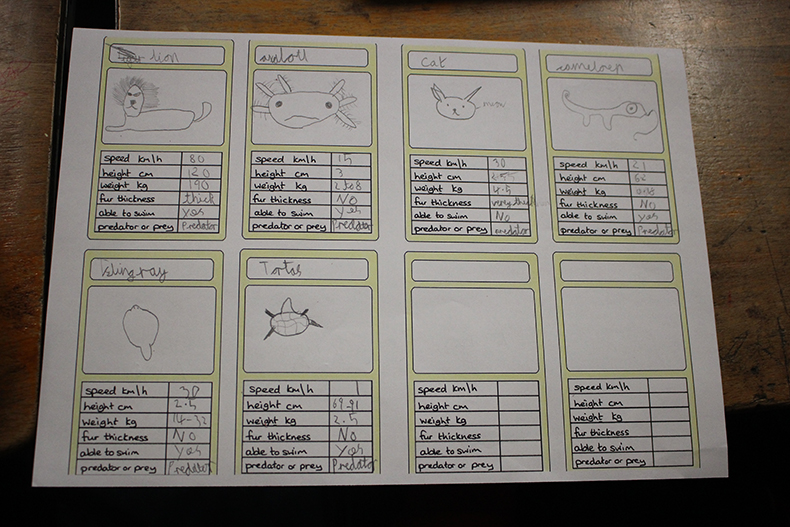 lion
speed km/h 80
height cm 120
weight kg 190
fur thickness thick
able to swim yes
predator or prey Predator
axolotl
speed km/h 15
height cm 3
weight kg
fur thickness NO
able to swim yes
predator or prey Predator
cat
meow
speed km/h 30
height cm
weight kg 4.5
fur thickness very thick
able to swim NO
predator or prey predator
speed km/h 21
height cm
weight kg
fur thickness NO
able to swim yes
predator or prey Predator
Stingray
speed km/h 30
height cm 2.5
weight kg 14-32
fur thickness NO
able to swim Yes
predator or prey Predator
Tortos
speed km/h 1
height cm 69-91
weight kg 2.5
fur thickness NO
able to swim Yes
predator or prey Predator
speed km/h
height cm
weight kg
fur thickness
able to swim
predator or prey
speed km/h
height cm
weight kg
fur thickness
able to swim
predator or prey